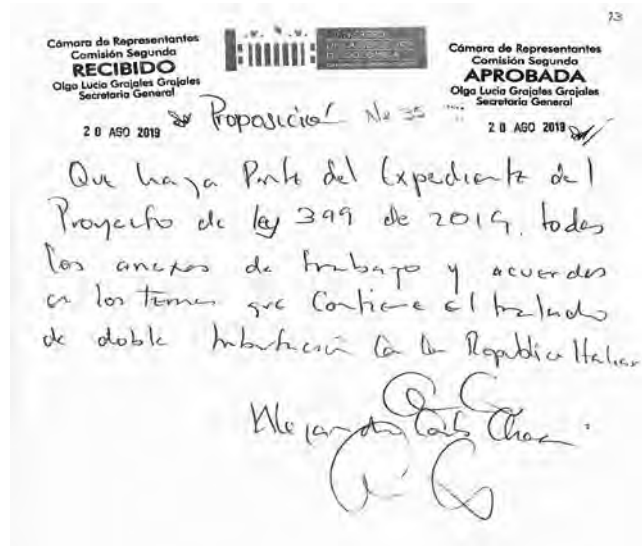 23
Cámara de Representantes
Comisión Segunda
RECIBIDO
Olga Lucia Grajales Grajales
Secretaria General
20 AGO 2019
Cámara de Representantes
Comisión Segunda
APROBADA
Olga Lucia Grajales Grajales
Secretaria General
20 AGO 2019
Proposición No 35
Que haga Parte del Expediente del
Proyecto de ley 399 de 2019. todos
los anexos de trabajo y acuerdos
en los temas que Contiene el tratado
de doble tributación Con la Republica Italiana
Alejandro Carlos Chacón